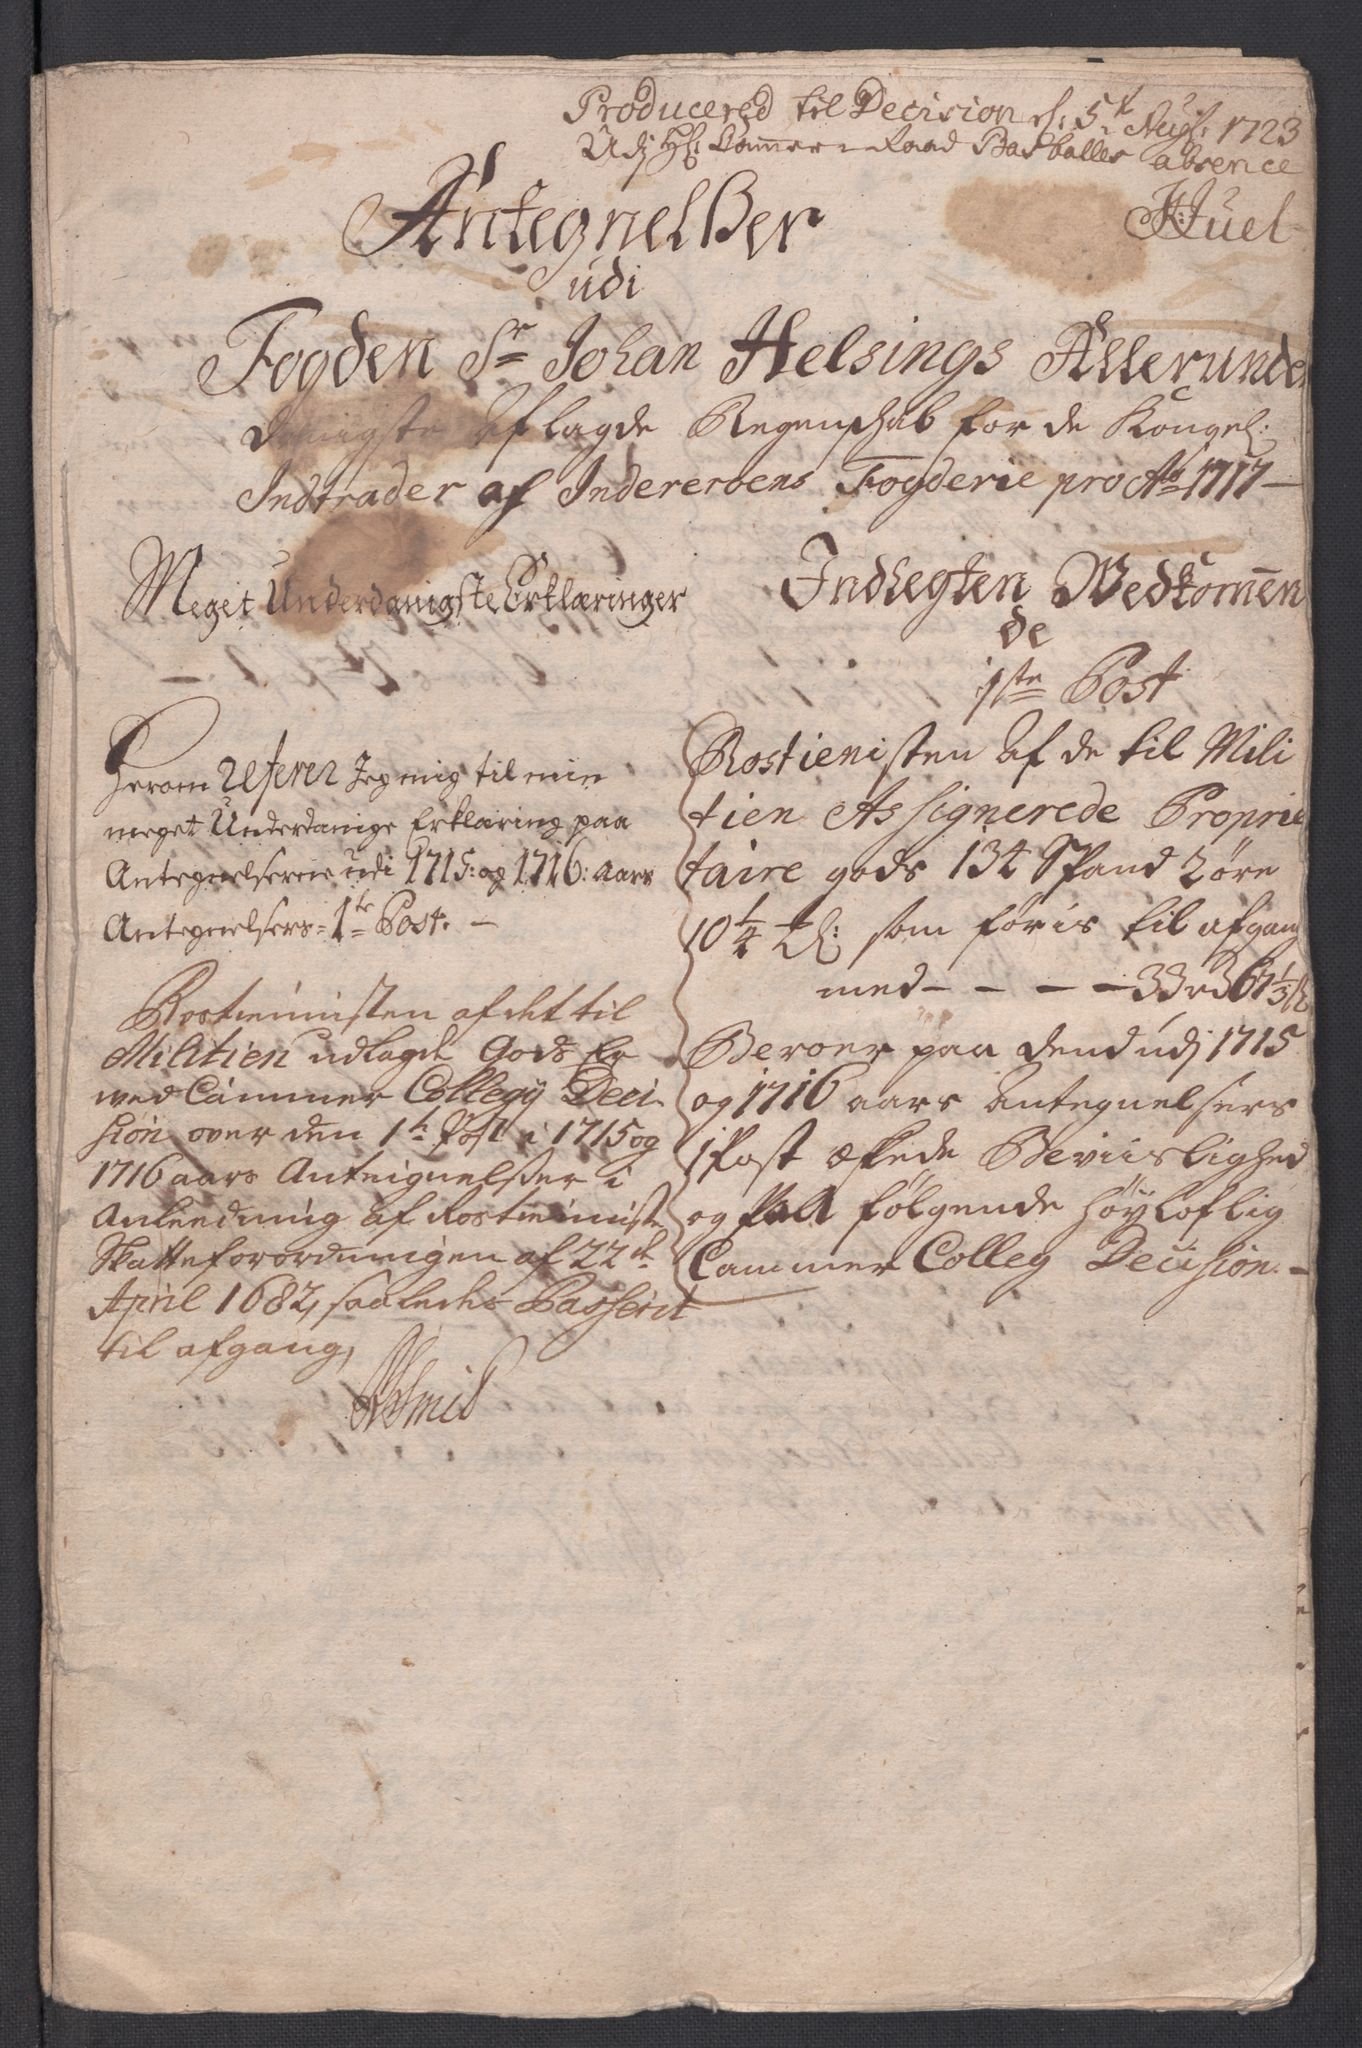 Producered til Decision d: 5t Aug: 1723
Udj Hr: Cammer-Raad Basballes absence
Juel
Antegnelßer
udi
Fogden Sr Johan Helsings Allerunder
danigste aflagde Regenskab for de Kongel:
Indtrader af Indereroens Fogderie pro Ao 1717 —
Meget Underdanigste Erklæringer
Herom referer Jeg mig til min
meget Underdanige Erklæring paa
Antegnelserne udi 1715: og 1716: aars
Antegnelsers 1te Post. —
Rostienisten af det til
Militien udlagde Gods Er
ved Cammer Collegij Deci
sion over den 1te Post i 1715 og
1716 aars Anteignelser i
Anleedning af Rostienniste
Skatteforordningen af 22de
April 1682, saaledes Passerit
til afgang,
Smid
Indtegten Wedkommen
de
1ste Post
Rostienisten af de til Mili
tien Assignerede Proprie
taire gods 134 Spand 2 øre
10¼ som føris til afgang
med - - - - 33 rd
Beroer paa dend udj 1715
og 1716 aars Antegnelsers
1 Post æskede Beviislighed
og paa følgende høyloflig
Cammer Colleg Decision. -